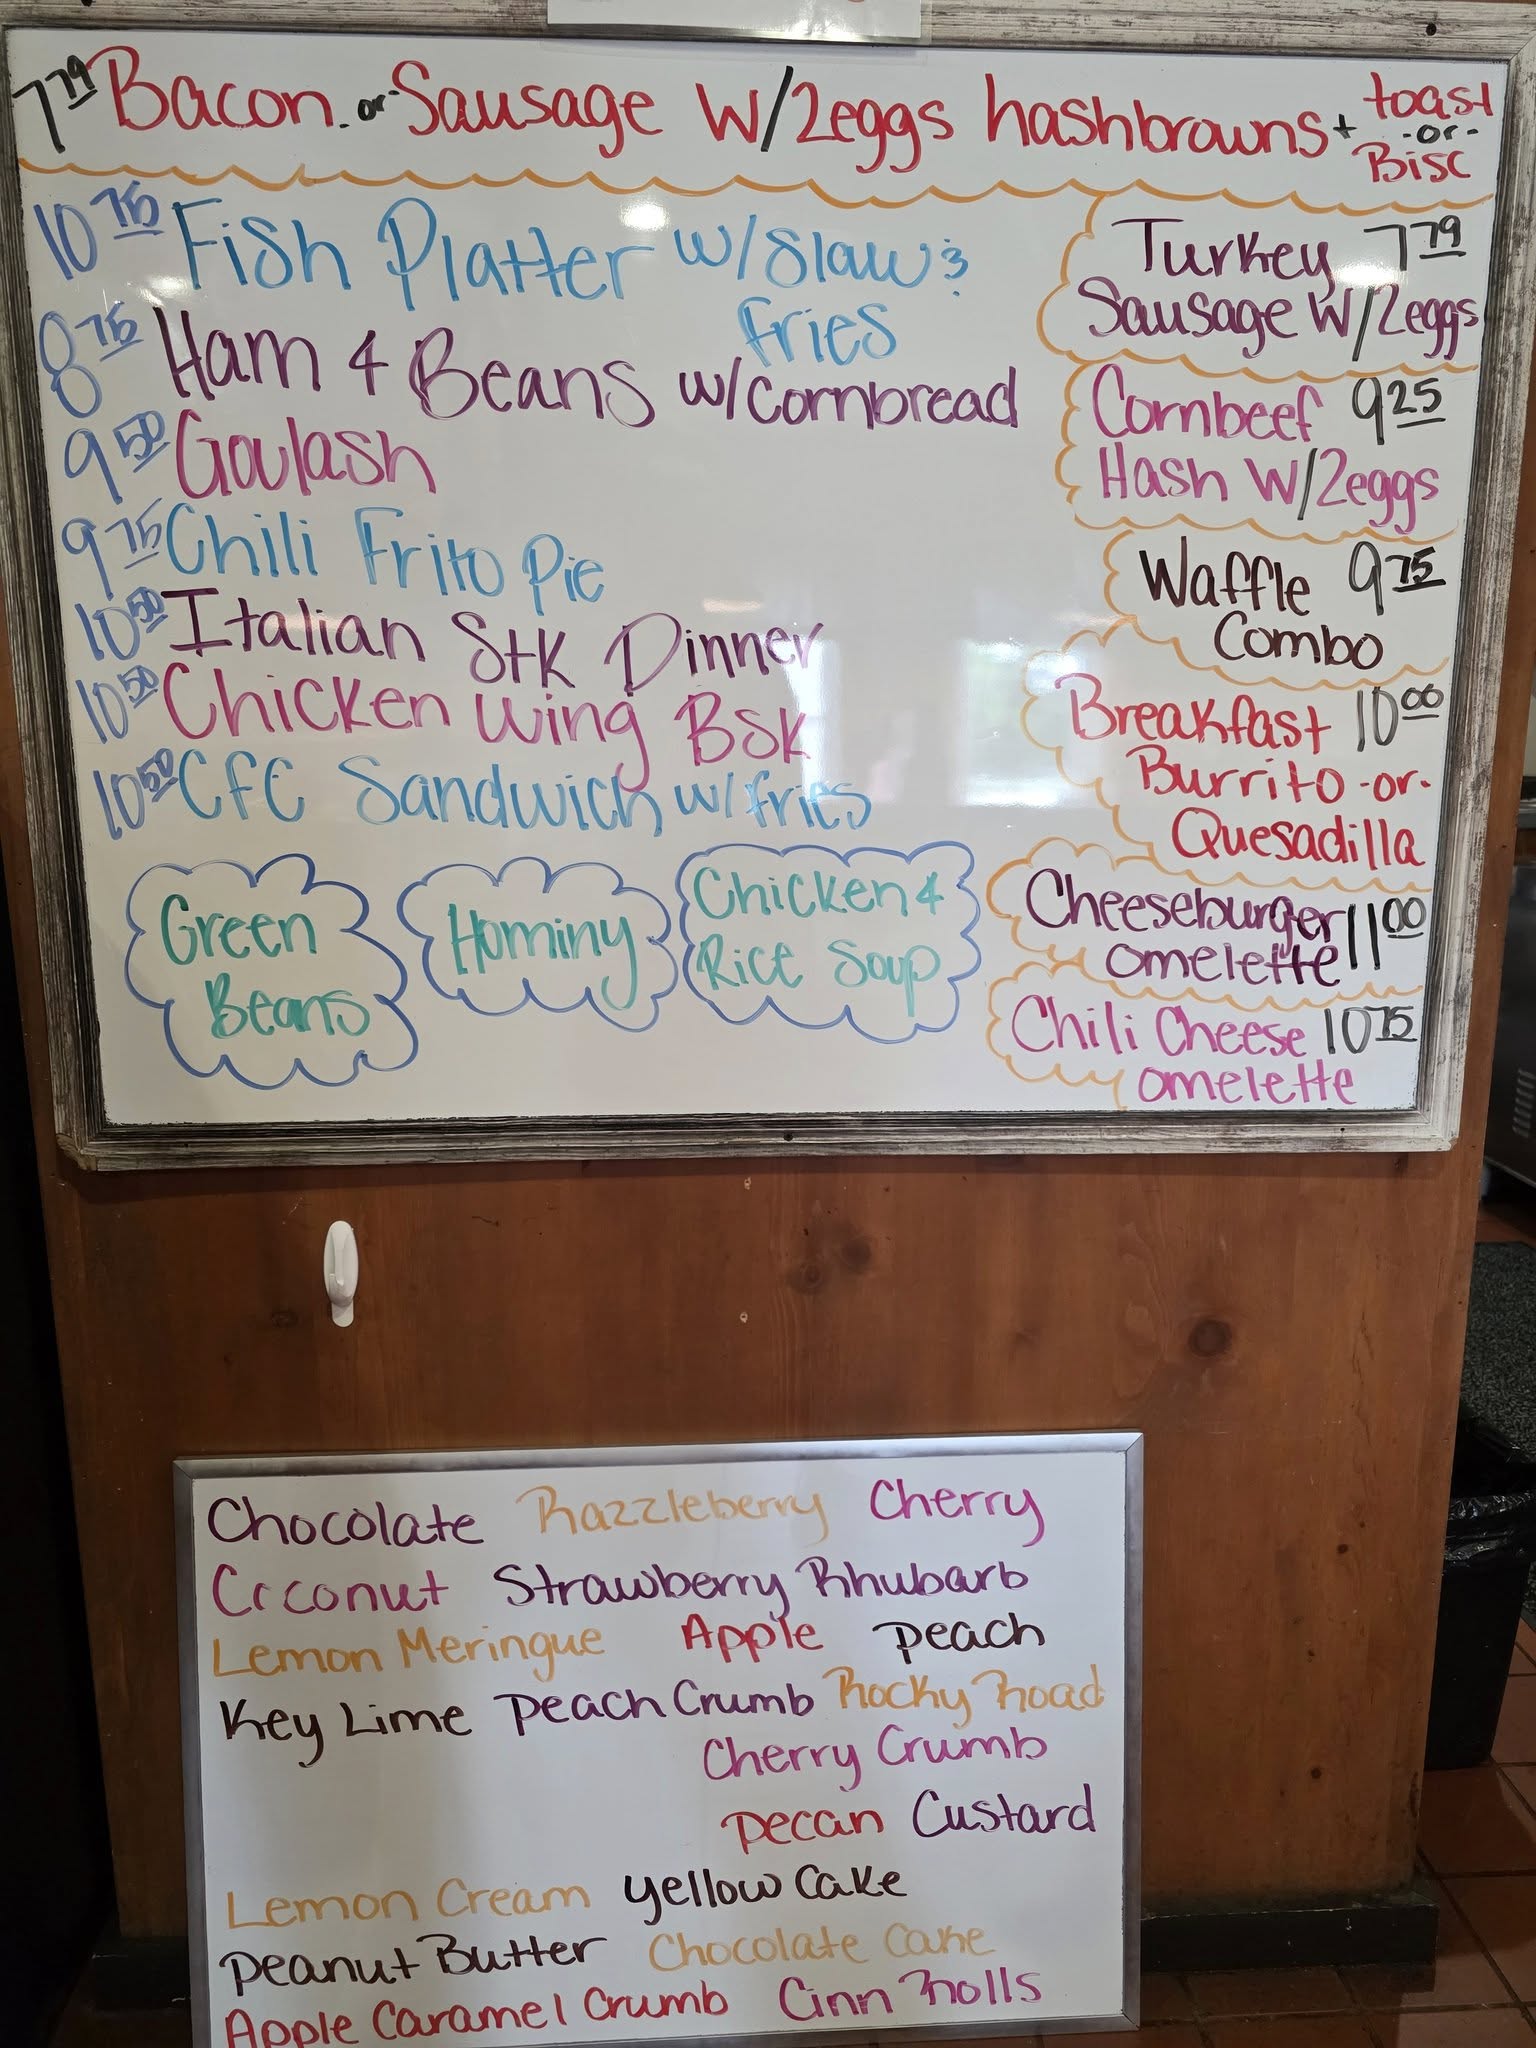 7 79 Bacon -or- Sausage W/2eggs hashbrowns + toast -or- Bisc
10 75 Fish Platter w/slaw & fries
8 75 Ham & Beans w/cornbread
9 50 Goulash
9 75 Chili Frito Pie
10 50 Italian Stk Dinner
10 50 Chicken Wing Bsk
10 50 CFC Sandwich w/fries
Green
Beans
Hominy
Chicken &
Rice Soup
Turkey 7 79
Sausage W/2eggs
Cornbeef 9 25
Hash W/2eggs
Waffle 9 75
Combo
Breakfast 10 00
Burrito -or-
Quesadilla
Cheeseburger 11 00
omelette
Chili Cheese 10 75
omelette
Chocolate Razzleberry Cherry
Coconut Strawberry Rhubarb
Lemon Meringue Apple Peach
Key Lime Peach Crumb Rocky Road
Cherry Crumb
Pecan Custard
Lemon Cream Yellow Cake
Peanut Butter Chocolate Cake
Apple Caramel Crumb Cinn Rolls